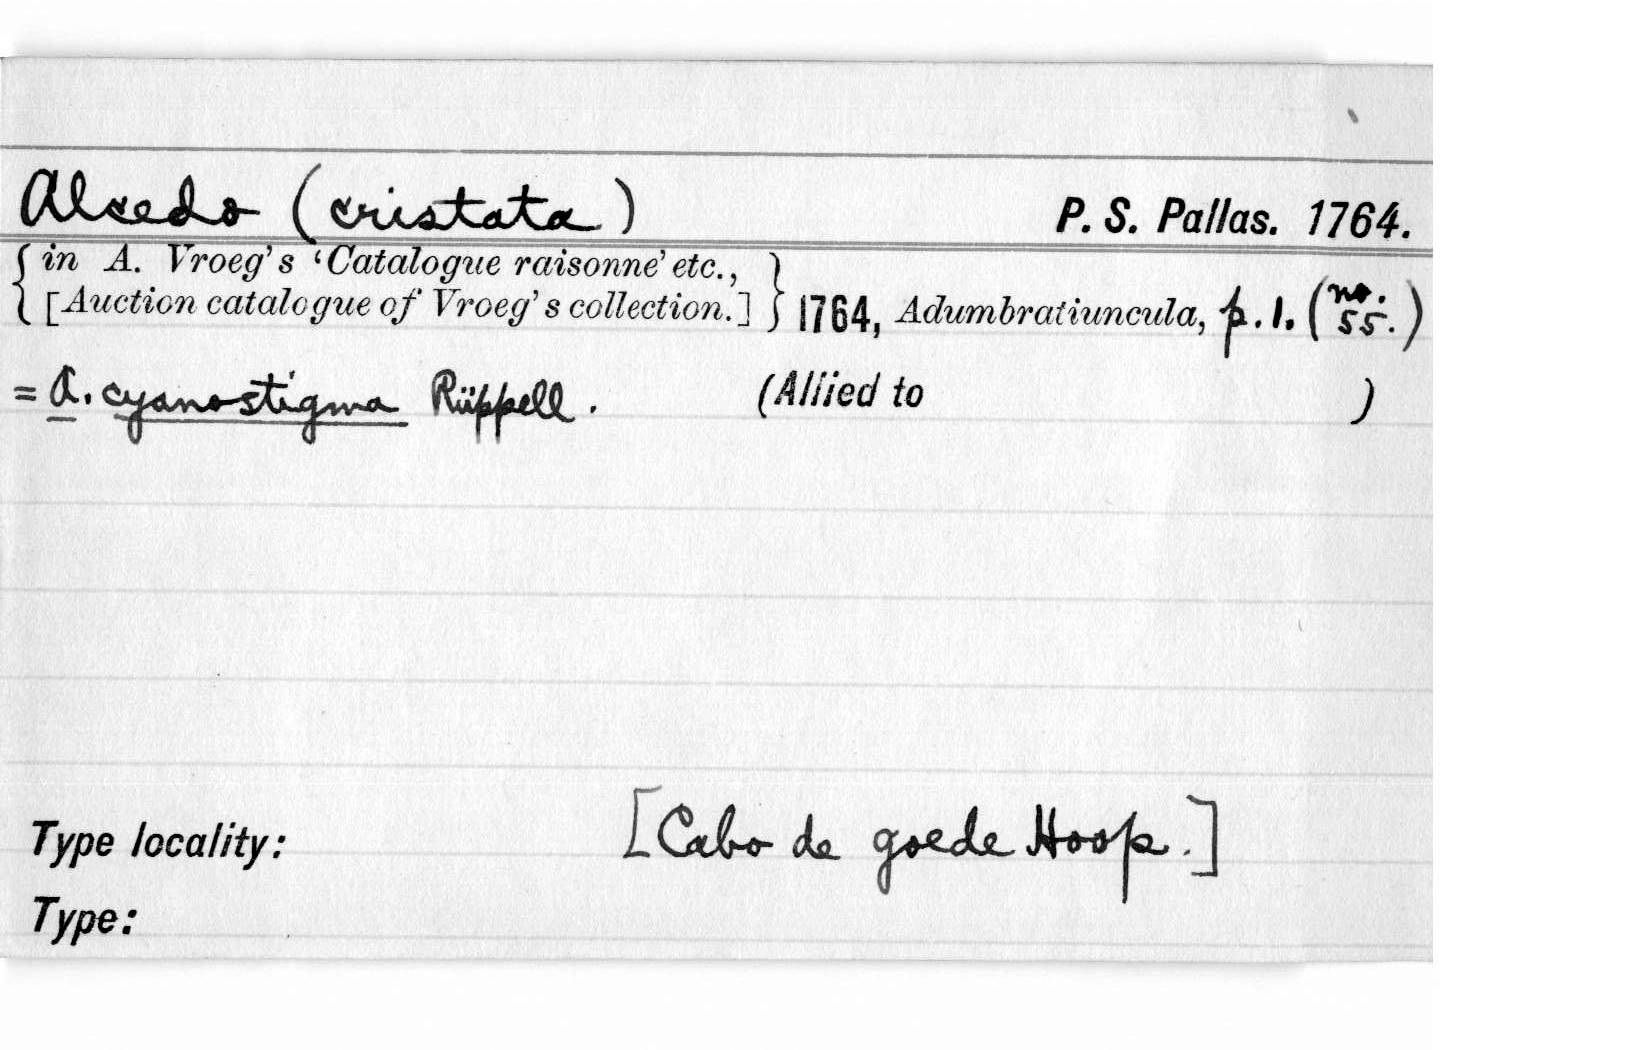 Alcedo (cristata) P. S. Pallas. 1764.
{ in A. Vroeg's 'Catalogue raisonne' etc., }
{ [Auction catalogue of Vroeg's collection.] } 1764, Adumbratiuncula, p. 1. (no. 55.)
= A. cyanostigma Rüppell. (Allied to )
Type locality: [Cabo de goede Hoop.]
Type: